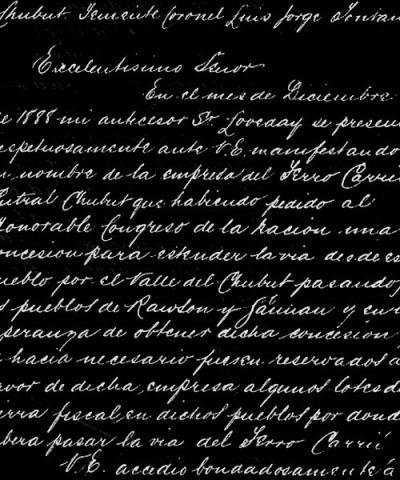 Chubut Teniente Coronel Luis Jorge Fontan
Excelentisimo Señor
En el mes de Diciembre
de 1888 mi antecesor Sr. Loveday se presen
espetuosamente ante V.E. manifestando
n nombre de la empresa del Ferro Carri
entral Chubut que habiendo pedido al
Honorable Congreso de la nacion una
concesion para estender la via desde es
pueblo por el Valle del Chubut pasando
s pueblos de Rawson y Gaiman y en
speranza de obtener dicha concesion
e hacia necesario fuesen reservados a
avor de dicha, empresa algunos lotes d
ierra fiscal, en dichos pueblos por dond
ebera pasar la via del Ferro Carril
V.E. accedio bondadosamente á